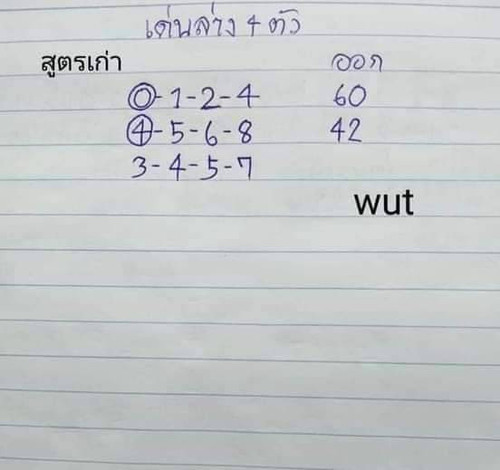 เด่นล่าง 4 ตัว
สูตรเก่า ออก
0-1-2-4 60
4-5-6-8 42
3-4-5-7
wut